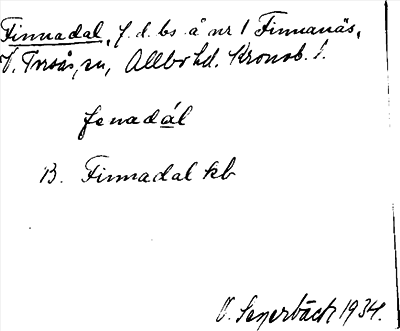 Finnadal, f. d. bs å nr 1 Finnanäs,
V. Torsås, sn, Allbo hd. Kronob. l.
fenadál
B. Finnadal kb
O. Segerbäck 1934.